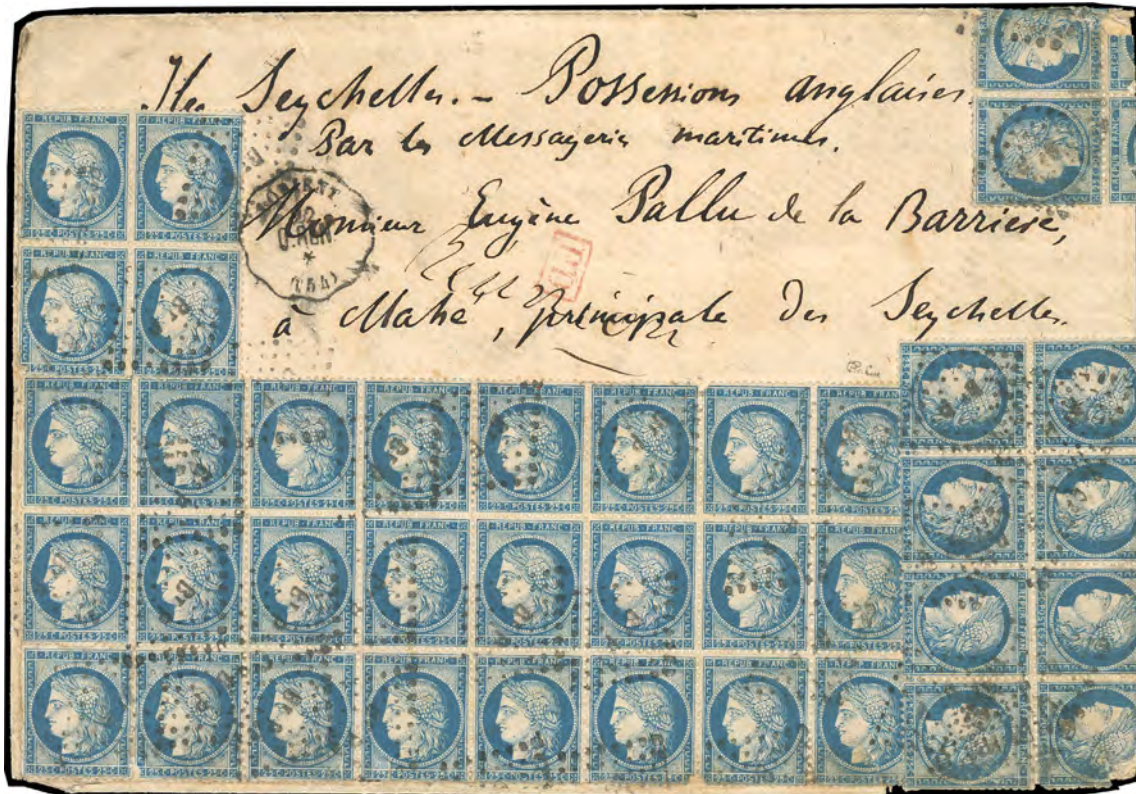 Iles Seychelles. - Possessions anglaises.
Par les Messageries maritimes.
Monsieur Eugène Pallu de la Barrière,
à Mahé, principale des Seychelles.
LORIENT
(54)
REPUB·FRANC
25 C·POSTES·25 C